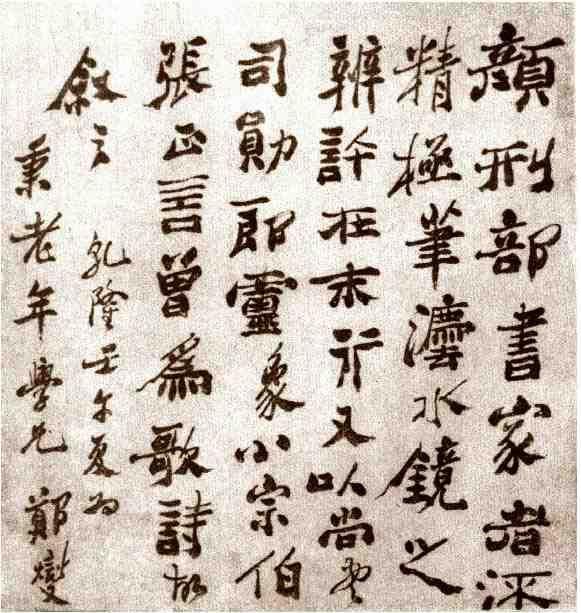 顏刑部書家者流
精極筆灋水鏡之
辨許在末行又以尚書
司勛郎盧象小宗伯
張正言曾爲歌詩故
敘之
乾隆壬午夏为
秉老年學兄鄭燮